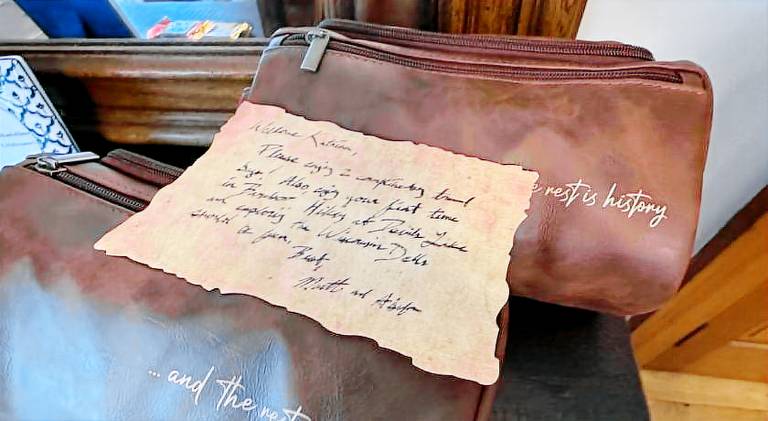 Welcome Katrina,
Please enjoy 2 complimentary travel
bags! Also enjoy your first time
in Baraboo. Hiking at Devils Lake
and exploring the Wisconsin Dells
should be fun.
Best,
Matt and
e rest is history
... and the rest